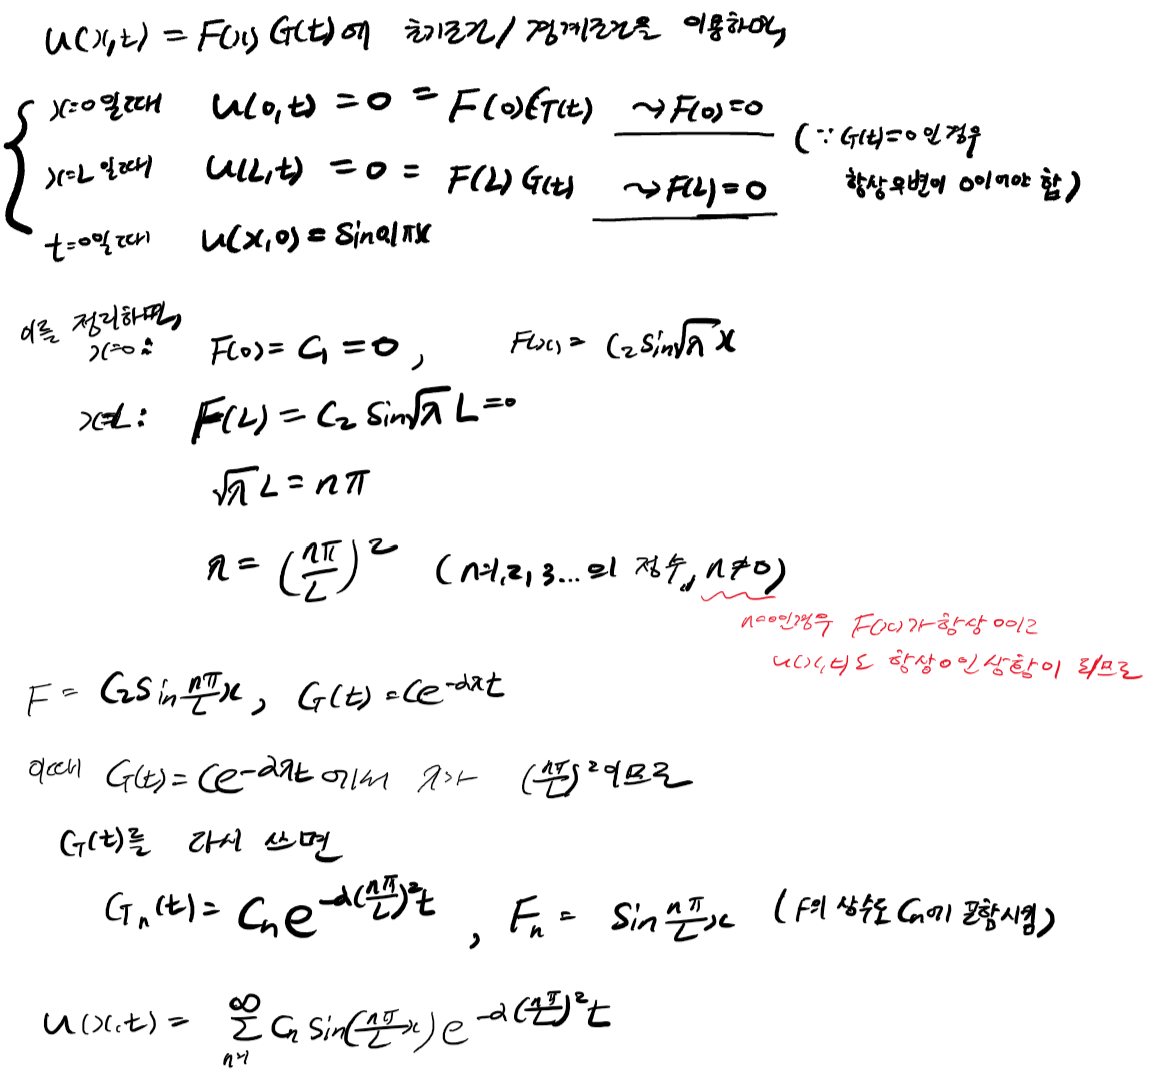 u(x,t) = F(x) G(t)에 초기조건/경계조건을 이용하여,
x=0일때 u(0,t) = 0 = F(0)G(t) ⤳ F(0)=0
(∵ G(t)=0인 경우
x=L일때 u(L,t) = 0 = F(L) G(t) ⤳ F(L)=0
항상 우변이 0이어야 함)
t=0일때 u(x,0) = Sin πx
이를 정리하면,
x=0: F(0) = C₁ = 0, F(x) = C₂ Sin√λ x
x=L: F(L) = C₂ Sin√λ L = 0
√λ L = nπ
λ = (nπ/L)² (n=1,2,3...의 정수, n≠0)
n=0인경우 F(x)가 항상 0이고
u(x,t)도 항상 0인 상황이 되므로
F = C₂ Sin nπ/L x, G(t) = Ce^(-αλt)
이때 G(t) = Ce^(-αλt) 에서 λ가 (nπ/L)² 이므로
G(t)를 다시 쓰면
Gₙ(t) = Cₙ e^(-α(nπ/L)²t), Fₙ = Sin nπ/L x (F의 상수도 Cₙ에 포함시킴)
u(x,t) = ∑_(n=1)^∞ Cₙ Sin(nπ/L x) e^(-α(nπ/L)²t)